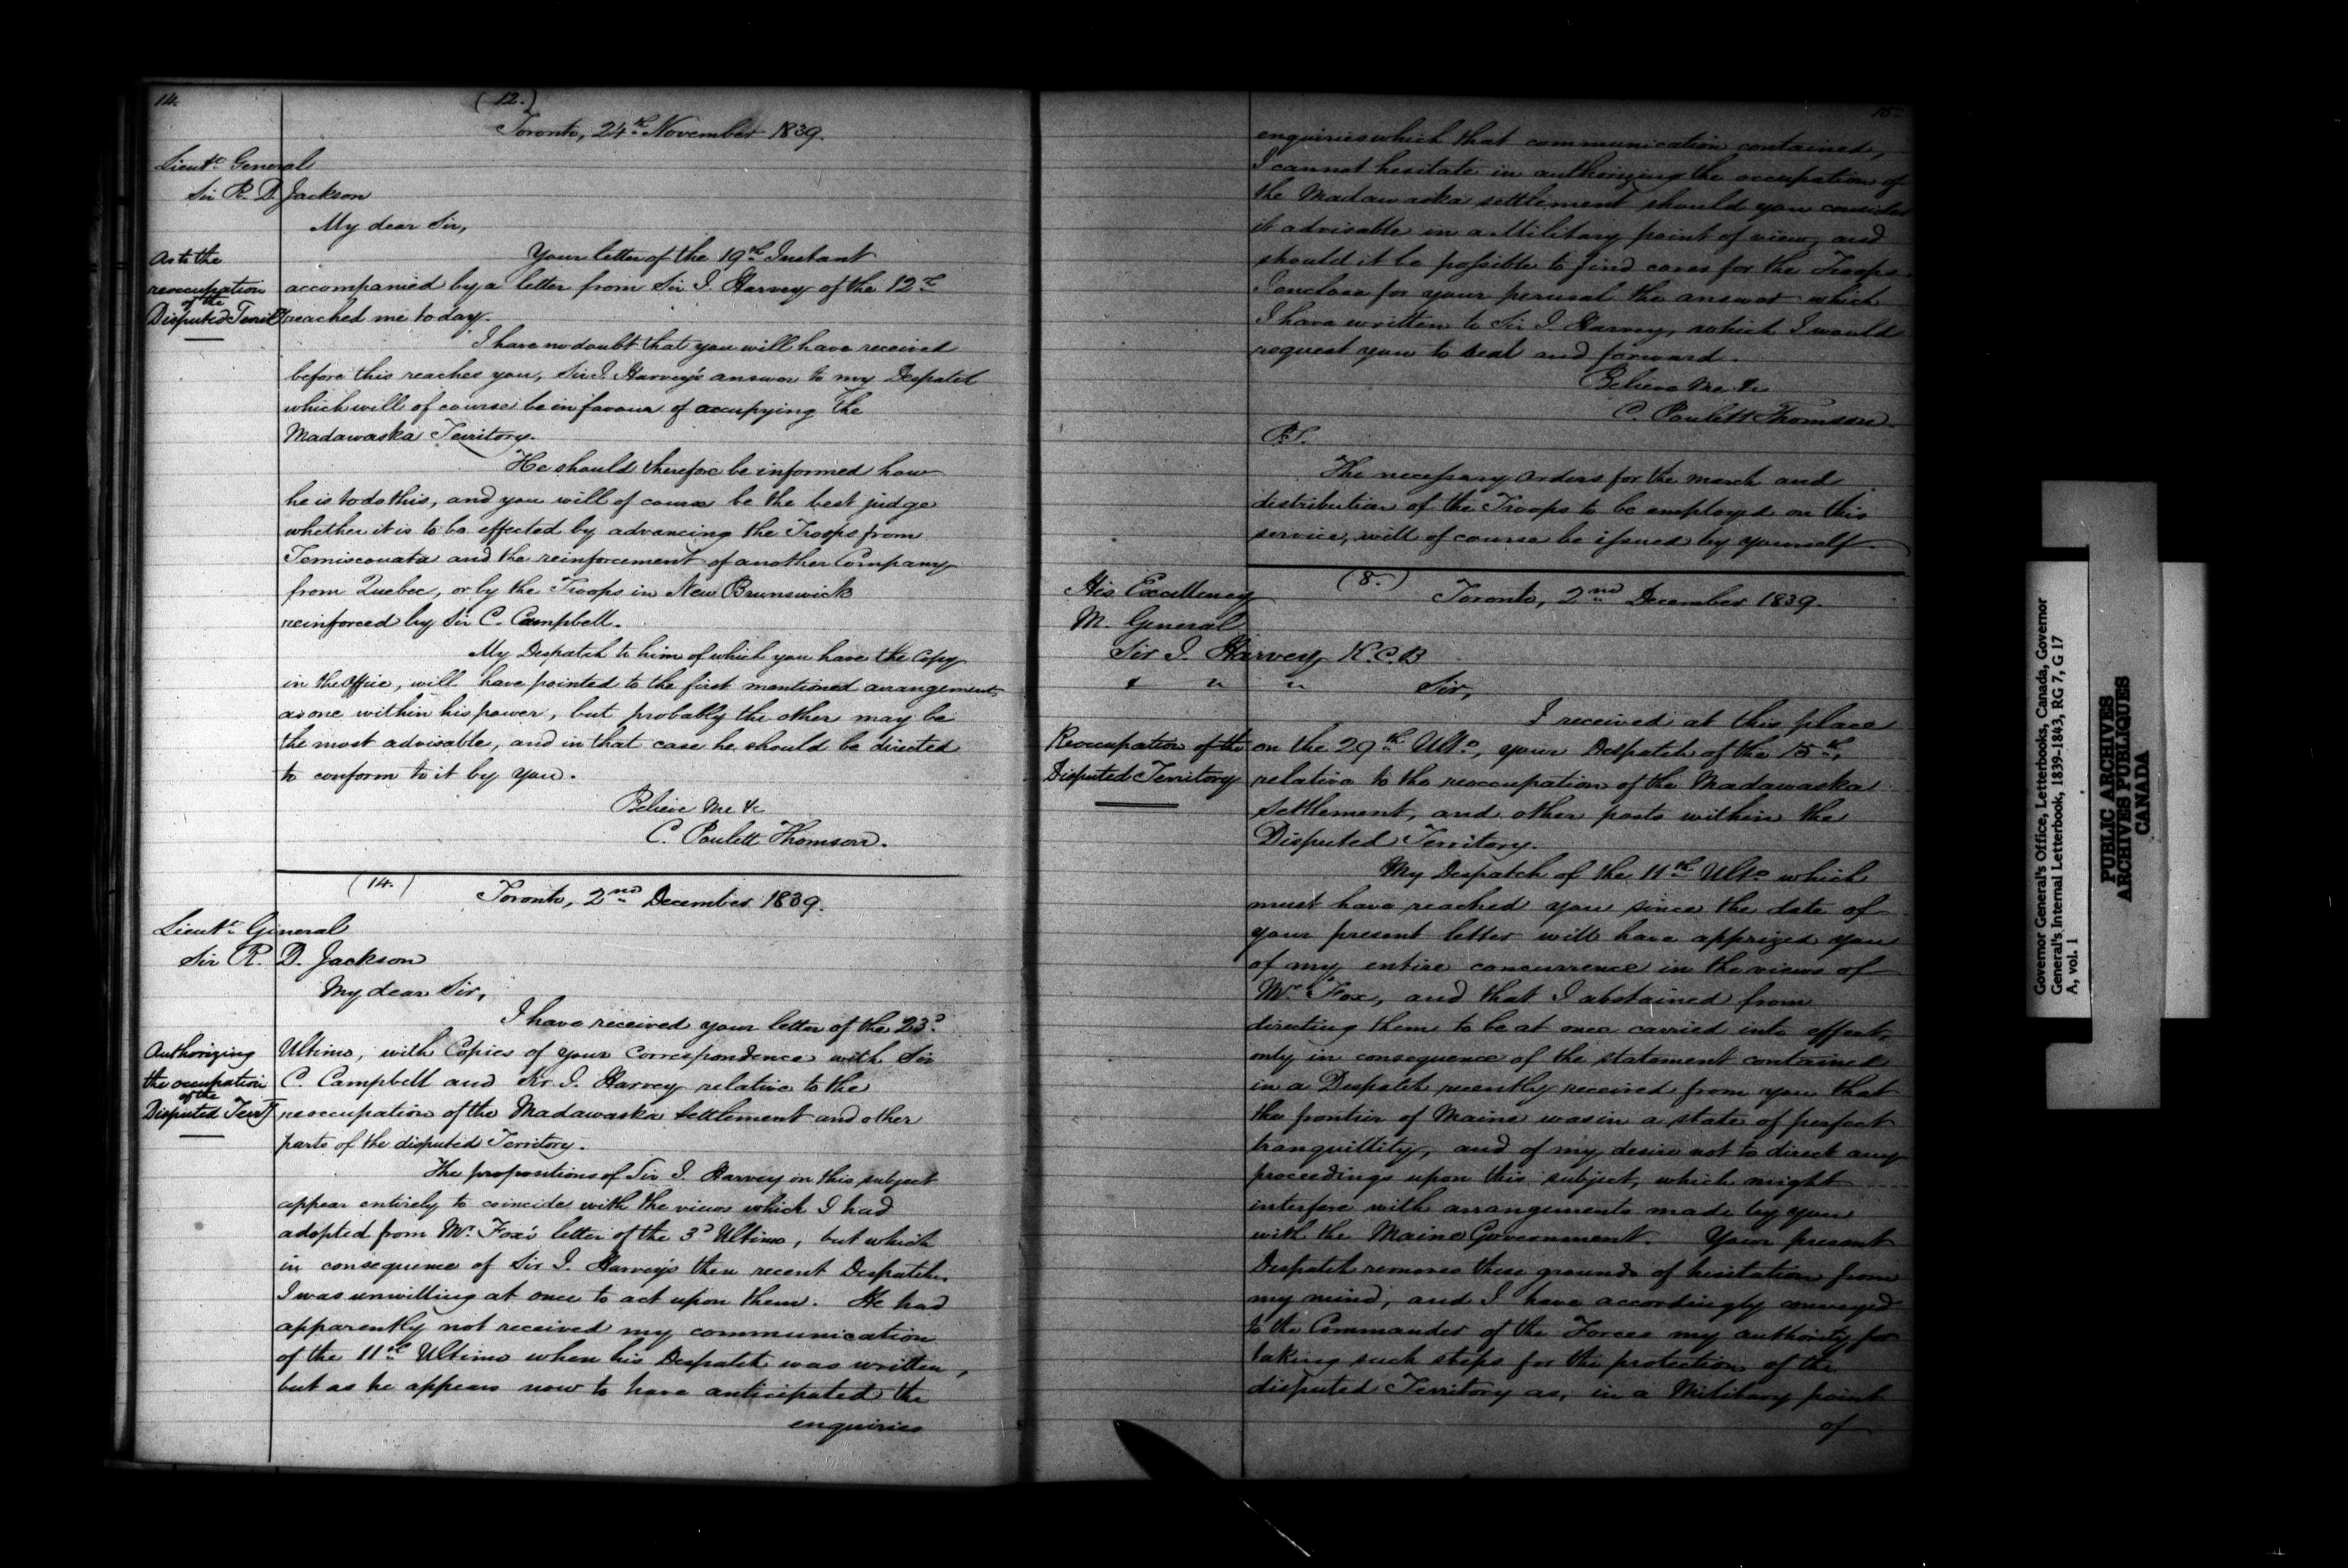 14.
(12.)
Toronto, 24th November 1839.
Lieutt General
Sir R. D. Jackson
My dear Sir,
As to the
reoccupation
of the
Disputed Territy
Your letter of the 19th Instant
accompanied by a letter from Sir J. Harvey of the 12th
reached me today.
I have no doubt that you will have received
before this reaches you, Sir J. Harvey's answer to my Despatch
which will of course be in favour of occupying the
Madawaska Territory.
He should therefore be informed how
he is to do this, and you will of course be the best judge
whether it is to be effected by advancing the Troops from
Temiscouata and the reinforcement of another Company
from Quebec, or by the Troops in New Brunswick
reinforced by Sir C. Campbell.
My Despatch to him of which you have the Copy
in the Office, will have pointed to the first mentioned arrangement
as one within his power, but probably the other may be
the most advisable, and in that case he should be directed
to conform to it by you.
Believe me &c
C. Poulett Thomson.
(14.)
Toronto, 2nd December 1839.
Lieutt General
Sir R. D. Jackson
My dear Sir,
Authorizing
the occupation
of the
Disputed Terry
I have received your letter of the 23d
Ultimo, with Copies of your Correspondence with Sir
C. Campbell and Sir J. Harvey relative to the
reoccupation of the Madawaska Settlement and other
parts of the disputed Territory.
The propositions of Sir J. Harvey on this subject
appear entirely to coincide with the views which I had
adopted from Mr Fox's letter of the 3d Ultimo, but which
in consequence of Sir J. Harvey's then recent Despatch
I was unwilling at once to act upon them. He had
apparently not received my communication
of the 11th Ultimo when his Despatch was written,
but as he appears now to have anticipated the
enquiries
15.
enquiries which that communication contained,
I cannot hesitate in authorizing the occupation of
the Madawaska settlement should you consider
it advisable in a Military point of view, and
should it be possible to find cover for the Troops.
I enclose for your perusal the answer which
I have written to Sir J. Harvey, which I would
request you to seal and forward.
Believe me &c
C. Poulett Thomson.
P.S.
The necessary orders for the march and
distribution of the Troops to be employed on this
service, will of course be issued by yourself.
(8.)
Toronto, 2nd December 1839.
His Excellency
M. General
Sir J. Harvey K.C.B
& " "
Sir,
Reoccupation of the
Disputed Territory
I received at this place
on the 29th Ulto, your Despatch of the 15th,
relative to the reoccupation of the Madawaska
Settlement, and other posts within the
Disputed Territory.
My Despatch of the 11th Ulto which
must have reached you since the date of
your present letter will have apprized you
of my entire concurrence in the views of
Mr Fox, and that I abstained from
directing them to be at once carried into effect,
only in consequence of the statement contained
in a Despatch recently received from you that
the frontier of Maine was in a state of perfect
tranquillity, and of my desire not to direct any
proceedings upon this subject, which might
interfere with arrangements made by you
with the Maine Government. Your present
Despatch removes these grounds of hesitation from
my mind, and I have accordingly conveyed
to the Commander of the Forces my authority for
taking such steps for the protection of the
disputed Territory as, in a Military point
of
Governor General's Office, Letterbooks, Canada, Governor
General's Internal Letterbook, 1839-1843, RG 7, G 17
A, vol. 1
PUBLIC ARCHIVES
ARCHIVES PUBLIQUES
CANADA